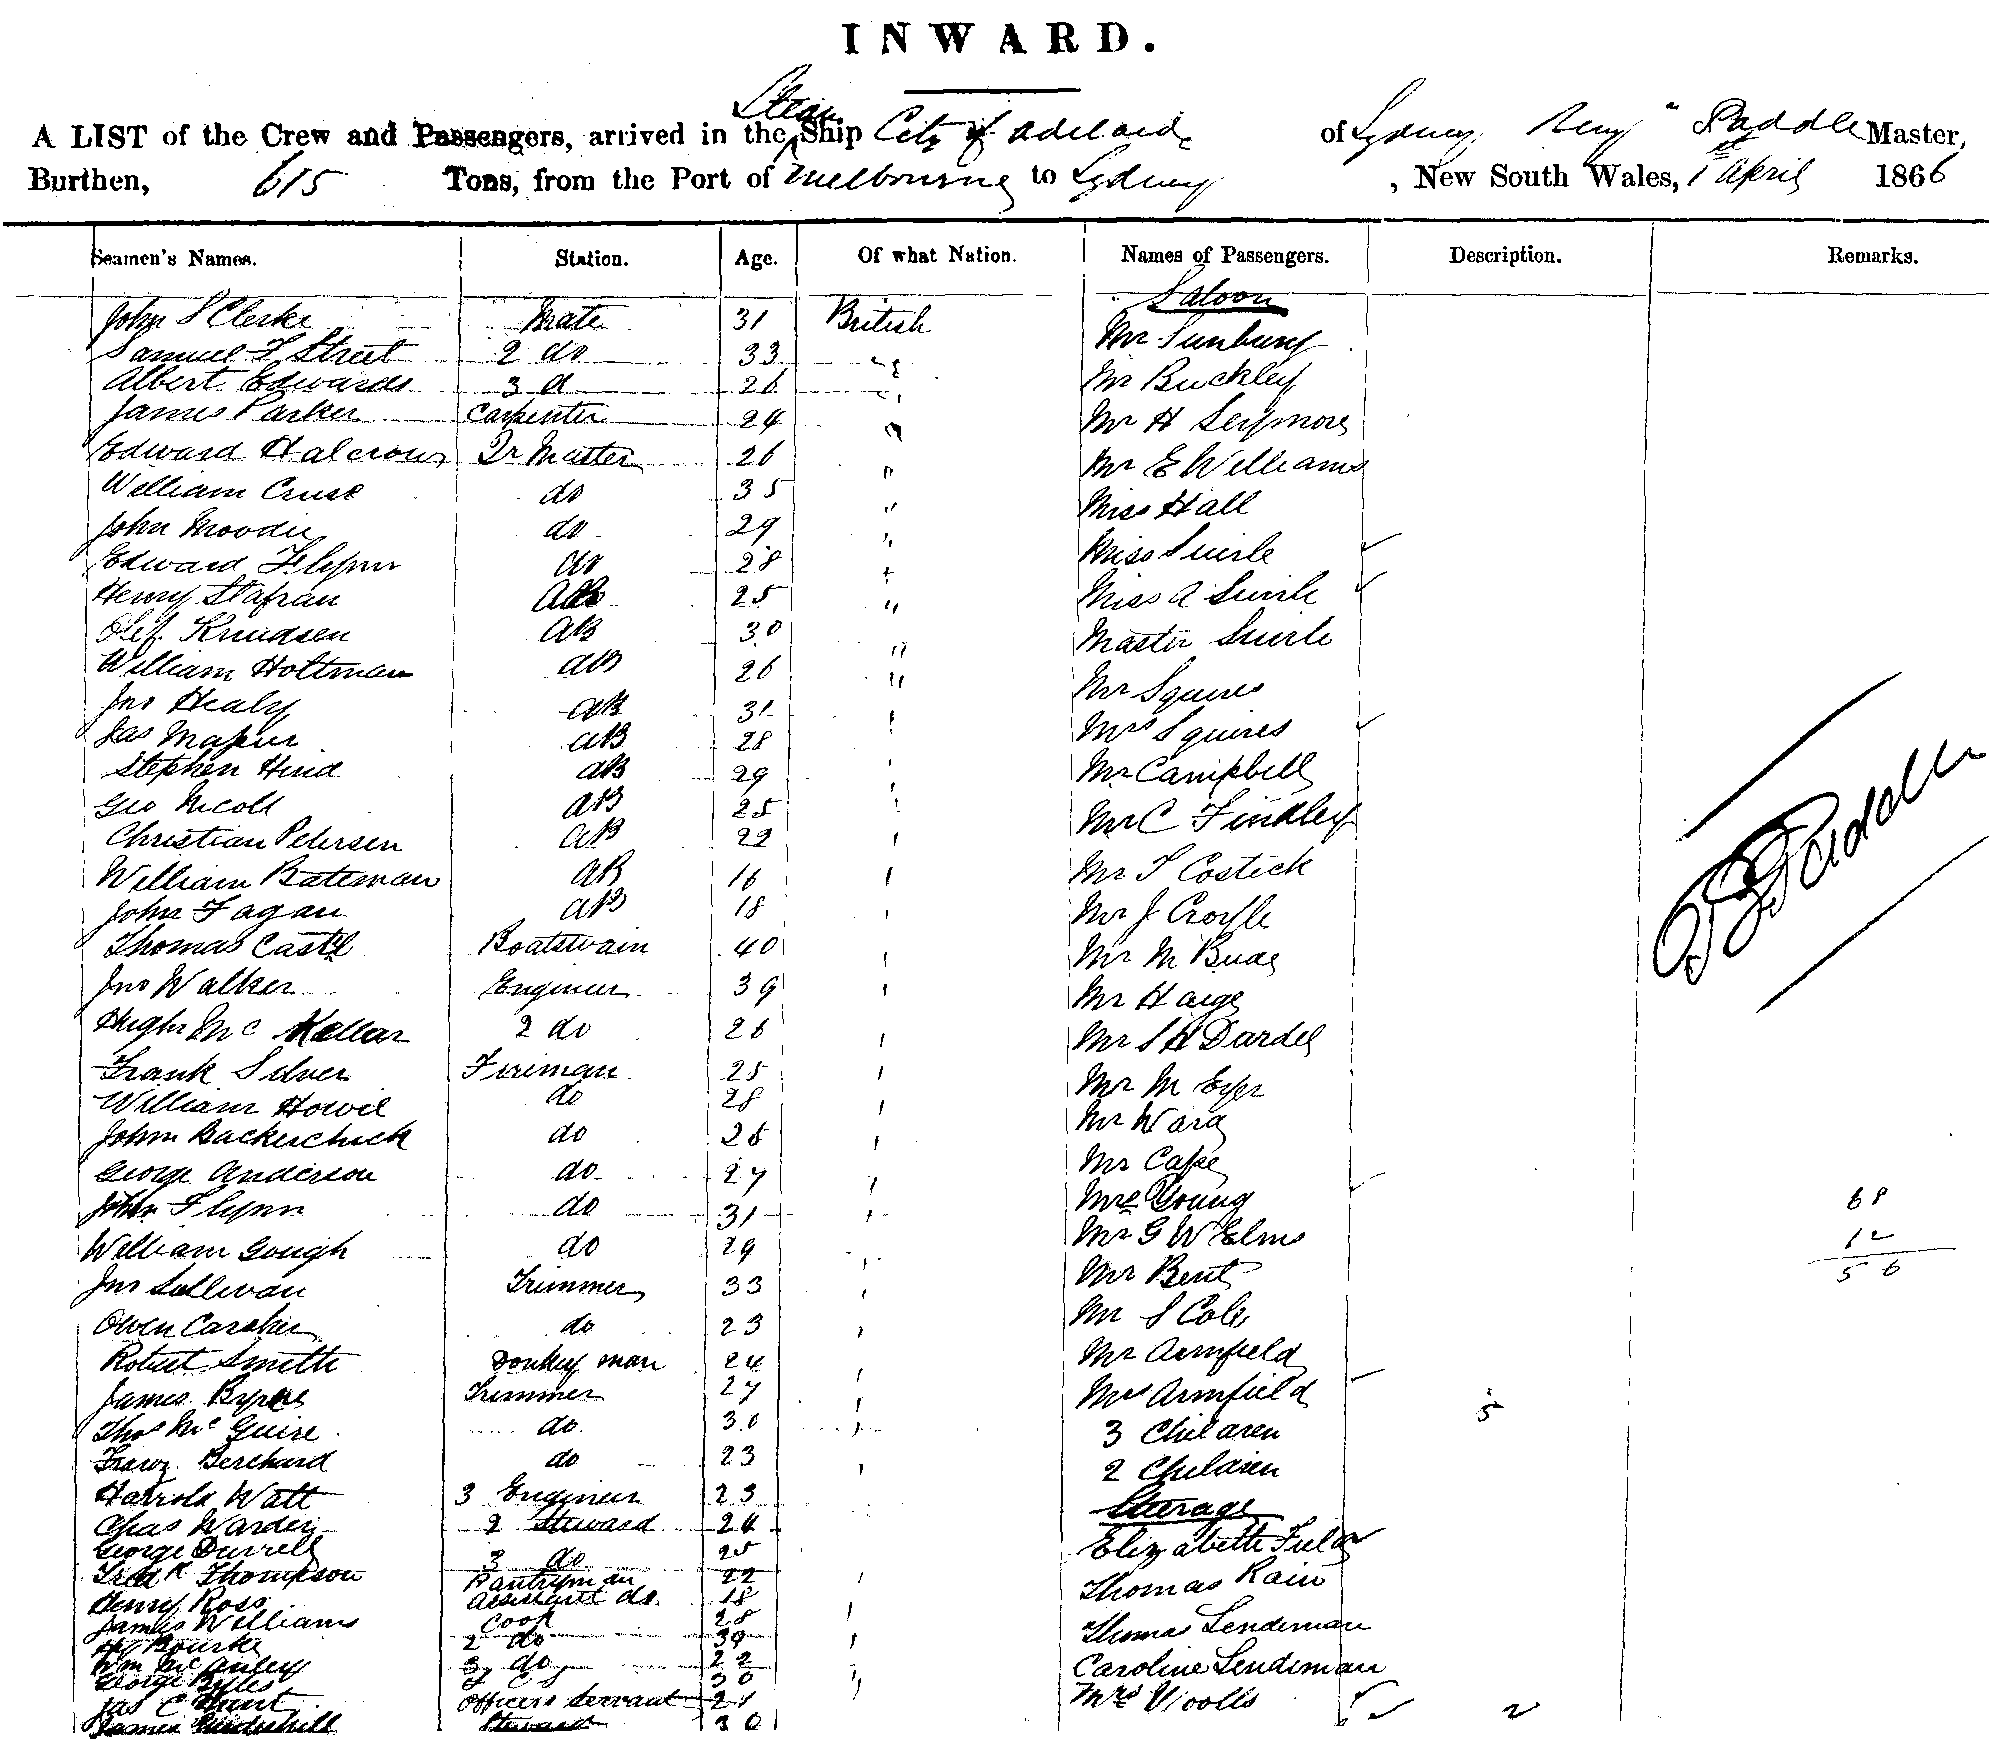 INWARD.
A LIST of the Crew and Passengers, arrived in the Steam Ship City of Adelaide of Sydney, Benj Paddle Master,
Burthen, 615 Tons, from the Port of Melbourne to Sydney , New South Wales, 1st April 1866
Seamen's Names. Station. Age. Of what Nation. Names of Passengers. Description. Remarks.
Saloon
John S Clerke Mate 31 British Mr Sunbury
Samuel F Street 2 do 33 " Mr Buckley
Albert Edwards 3 d 26 " Mr H Seymore
James Parker Carpenter 24 " Mr E Williams
Edward Halcrow Qr Master 26 " Miss Hall
William Cruse do 35 " Miss Suirle
John Moodie do 29 " Miss A Suirle
Edward Flynn do 28 " Master Suirle
Henry Stafran AB 25 " Mr Squires
Olef Knudsen AB 30 " Mrs Squires
William Holtman AB 26 " Mr Campbell
Jno Healy AB 31 " Mr C Findley
Jas AB 28 " Mr T Costick
Stephen Hind AB 29 " Mr J Croyle
Geo Nicoll AB 25 " Mr M
Christian Petersen AB 22 " Mr Haige
William Bateman AB 16 " Mr S H Dardel
John Fagan AB 18 " Mr M
Thomas Castle Boatswain 40 " Mr Ward
Jno Walker Engineer 39 " Mr Cape
Hugh McKellar 2 do 26 " Mrs Young
Frank Silver Fireman 25 " Mr G W Elms
William Howie do 28 " Mr Bent
John Backerchick do 26 " Mr S Cole
George Anderson do 27 " Mr Armfield
John Flynn do 31 " Mrs Armfield
William Gough do 29 " 3 Children 5
Jno Sullivan Trimmer 33 " 2 Children
Owen do 23 " Steerage
Robert Smith Donkey man 24 " Elizabeth Field
James Byrne Trimmer 27 " Thomas Rain
Thos McGuire do 30 " Thomas Lendeman
Franz Berchard do 23 " Caroline Lendeman
Harrold Watt 3 Engineer 23 Mrs Woolls 2
Chas Warden 2 Steward 24
George Durrell 3 do 25
Fredk Thompson Pantryman 22
Henry Ross Assistant do 18
James Williams Cook 28
Bourke 2 do 39
Wm McAuley 3 do 22
George 30
Jas C Officers Servant 21
James Underhill Steward 30
B Paddle
68
12
56